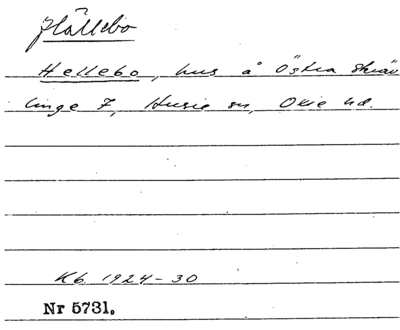 Hällebo
Hellebo, hus å Östra Skräv
linge 7, Husie sn, Oxie hd.
Kb 1924-30
Nr 5731.